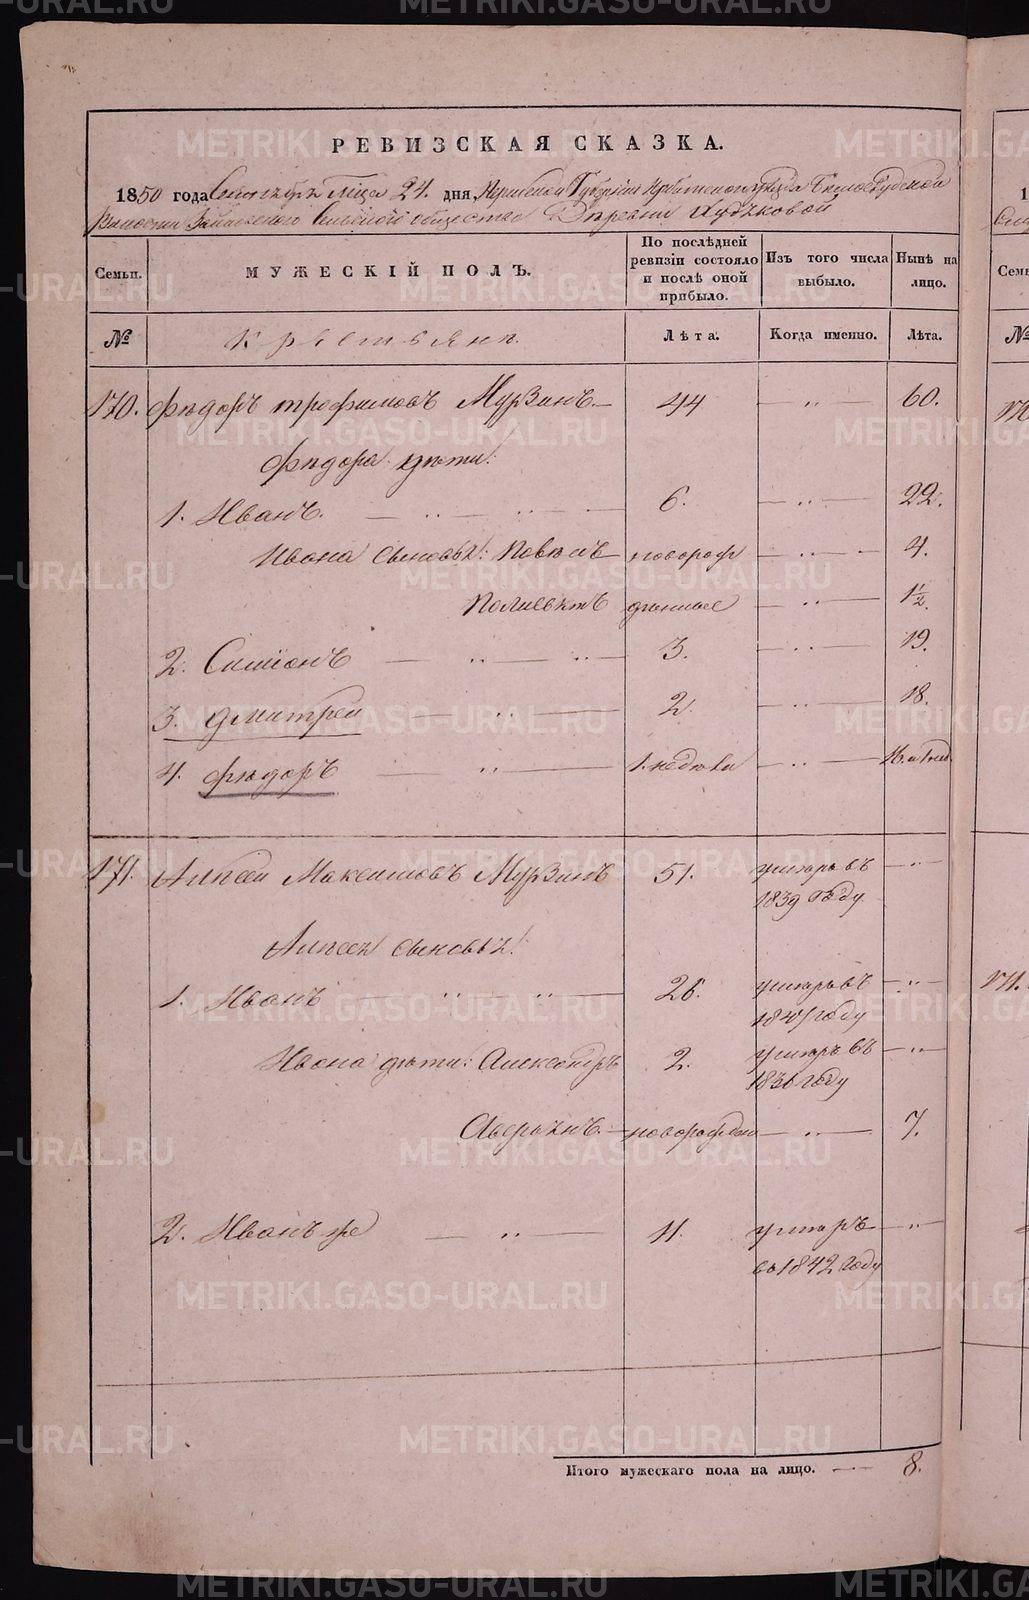 РЕВИЗСКАЯ СКАЗКА.
1850 года Сентября М҃ца 24. дня, Пермской Губерніи Ирбитскаго уѣзда Белослудской
Волости Зайковскаго Сельскаго общества Деревни
Семьи.
МУЖЕСКІЙ ПОЛЪ.
По послѣдней ревизіи состояло и послѣ оной прибыло.
Изъ того числа выбыло.
Нынѣ на лицо.
№
Крестьяне.
Лѣта.
Когда именно.
Лѣта.
170. Фѣдоръ трефимовъ Мурзинъ 44 — „ — 60.
Фѣдора дѣти:
1. Иванъ. — „ — 6. — „ — 22.
Ивана сыновья: Павелъ новорож — „ — 4.
Полиевктъ денные — „ — 1 1/2.
2. Симіонъ — „ — „ — 3. — „ — 19.
3. Дмитрей — „ — 2. — „ — 18.
4. Фѣдоръ — „ — 1. недѣли — „ —
171. Алпсей Максимовъ Мурзинъ 51. умеръ въ 1839 году — „ —
сыновья:
1. Иванъ — „ — „ — 26. умеръ въ году — „ —
Ивана дѣти: Александръ 2. умеръ въ 1836 году — „ —
Аверьянъ. — новорожден — „ — 7.
2. Иванъ же — „ — 11. умеръ въ 1842 году — „ —
Итого мужескаго пола на лицо. — 8.
METRIKI.GASO-URAL.RU